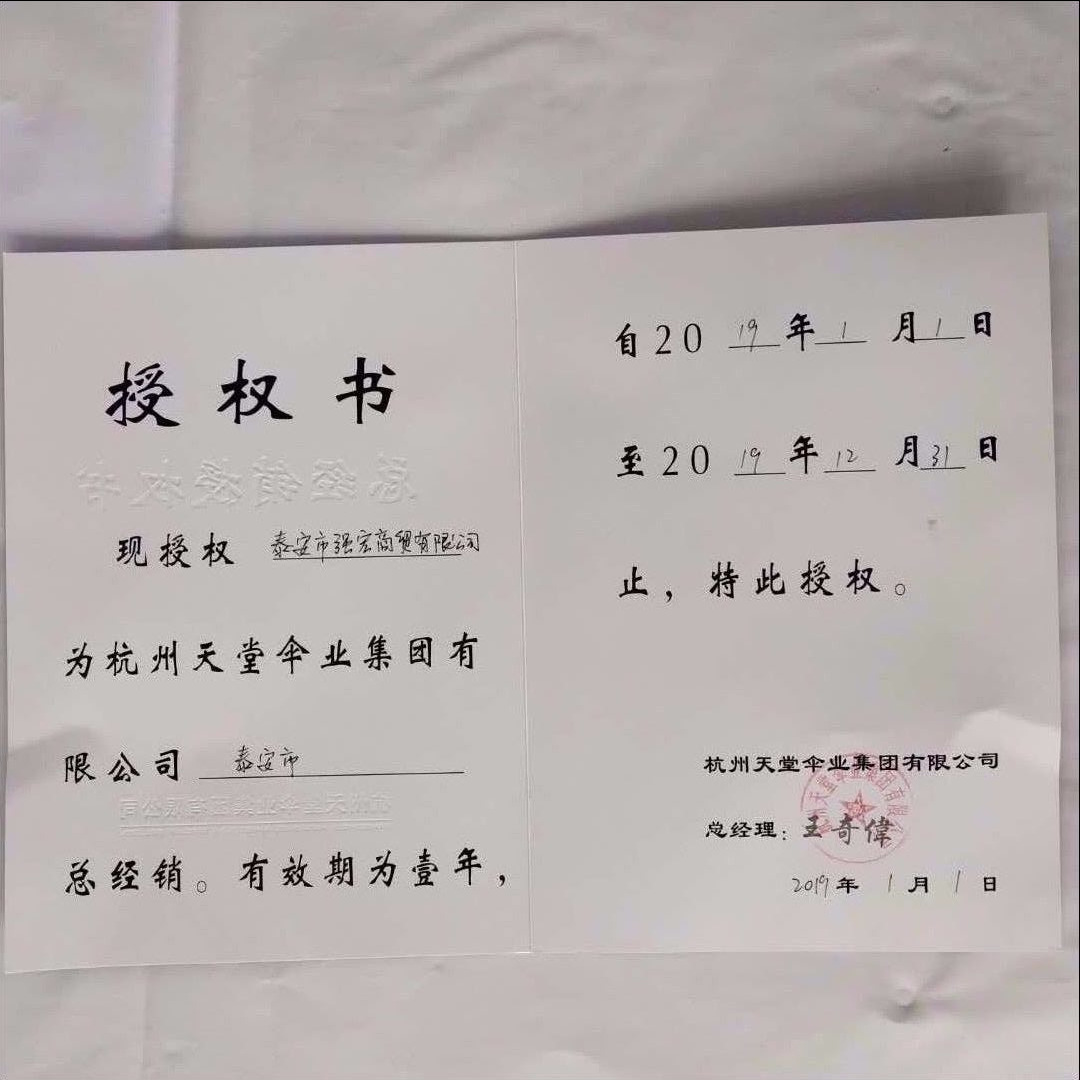 授权书
总经销授权书
现授权 泰安市强宏商贸有限公司
为杭州天堂伞业集团有
限公司 泰安市
杭州天堂伞业集团有限公司
总经销。有效期为壹年,
自20 19 年 1 月 1 日
至20 19 年 12 月 31 日
止,特此授权。
杭州天堂伞业集团有限公司
总经理:王奇偉
杭州天堂伞业集团有限公司
2019 年 1 月 1 日